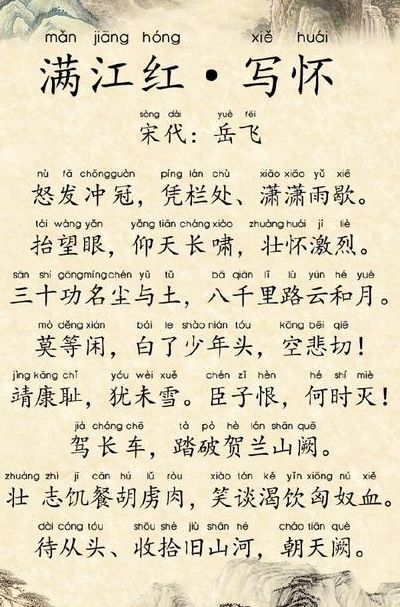 mǎn jiāng hóng xiě huái
满江红·写怀
sòng dài yuè fēi
宋代：岳飞
nù fā chōngguàn píng lán chù xiāo xiāo yǔ xiē
怒发冲冠，凭栏处、潇潇雨歇。
tái wàng yǎn yǎng tiān cháng xiào zhuàng huái jī liè
抬望眼，仰天长啸，壮怀激烈。
sān shí gōngmíngchén yǔ tǔ bā qiān lǐ lù yún hé yuè
三十功名尘与土，八千里路云和月。
mò děng xián bái le shào nián tóu kōng bēi qiē
莫等闲，白了少年头，空悲切！
jìng kāng chǐ yóu wèi xuě chén zǐ hèn hé shí miè
靖康耻，犹未雪。臣子恨，何时灭！
jià cháng chē tà pò hè lán shān quē
驾长车，踏破贺兰山阙。
zhuàng zhì jī cān hú lǔ ròu xiào tán kě yǐn xiōng nú xiě
壮 志饥餐胡虏肉，笑谈渴饮匈奴血。
dài cóng tóu shōu shè jiù shān hé cháo tiān què
待从头、收拾旧山河，朝天阙。